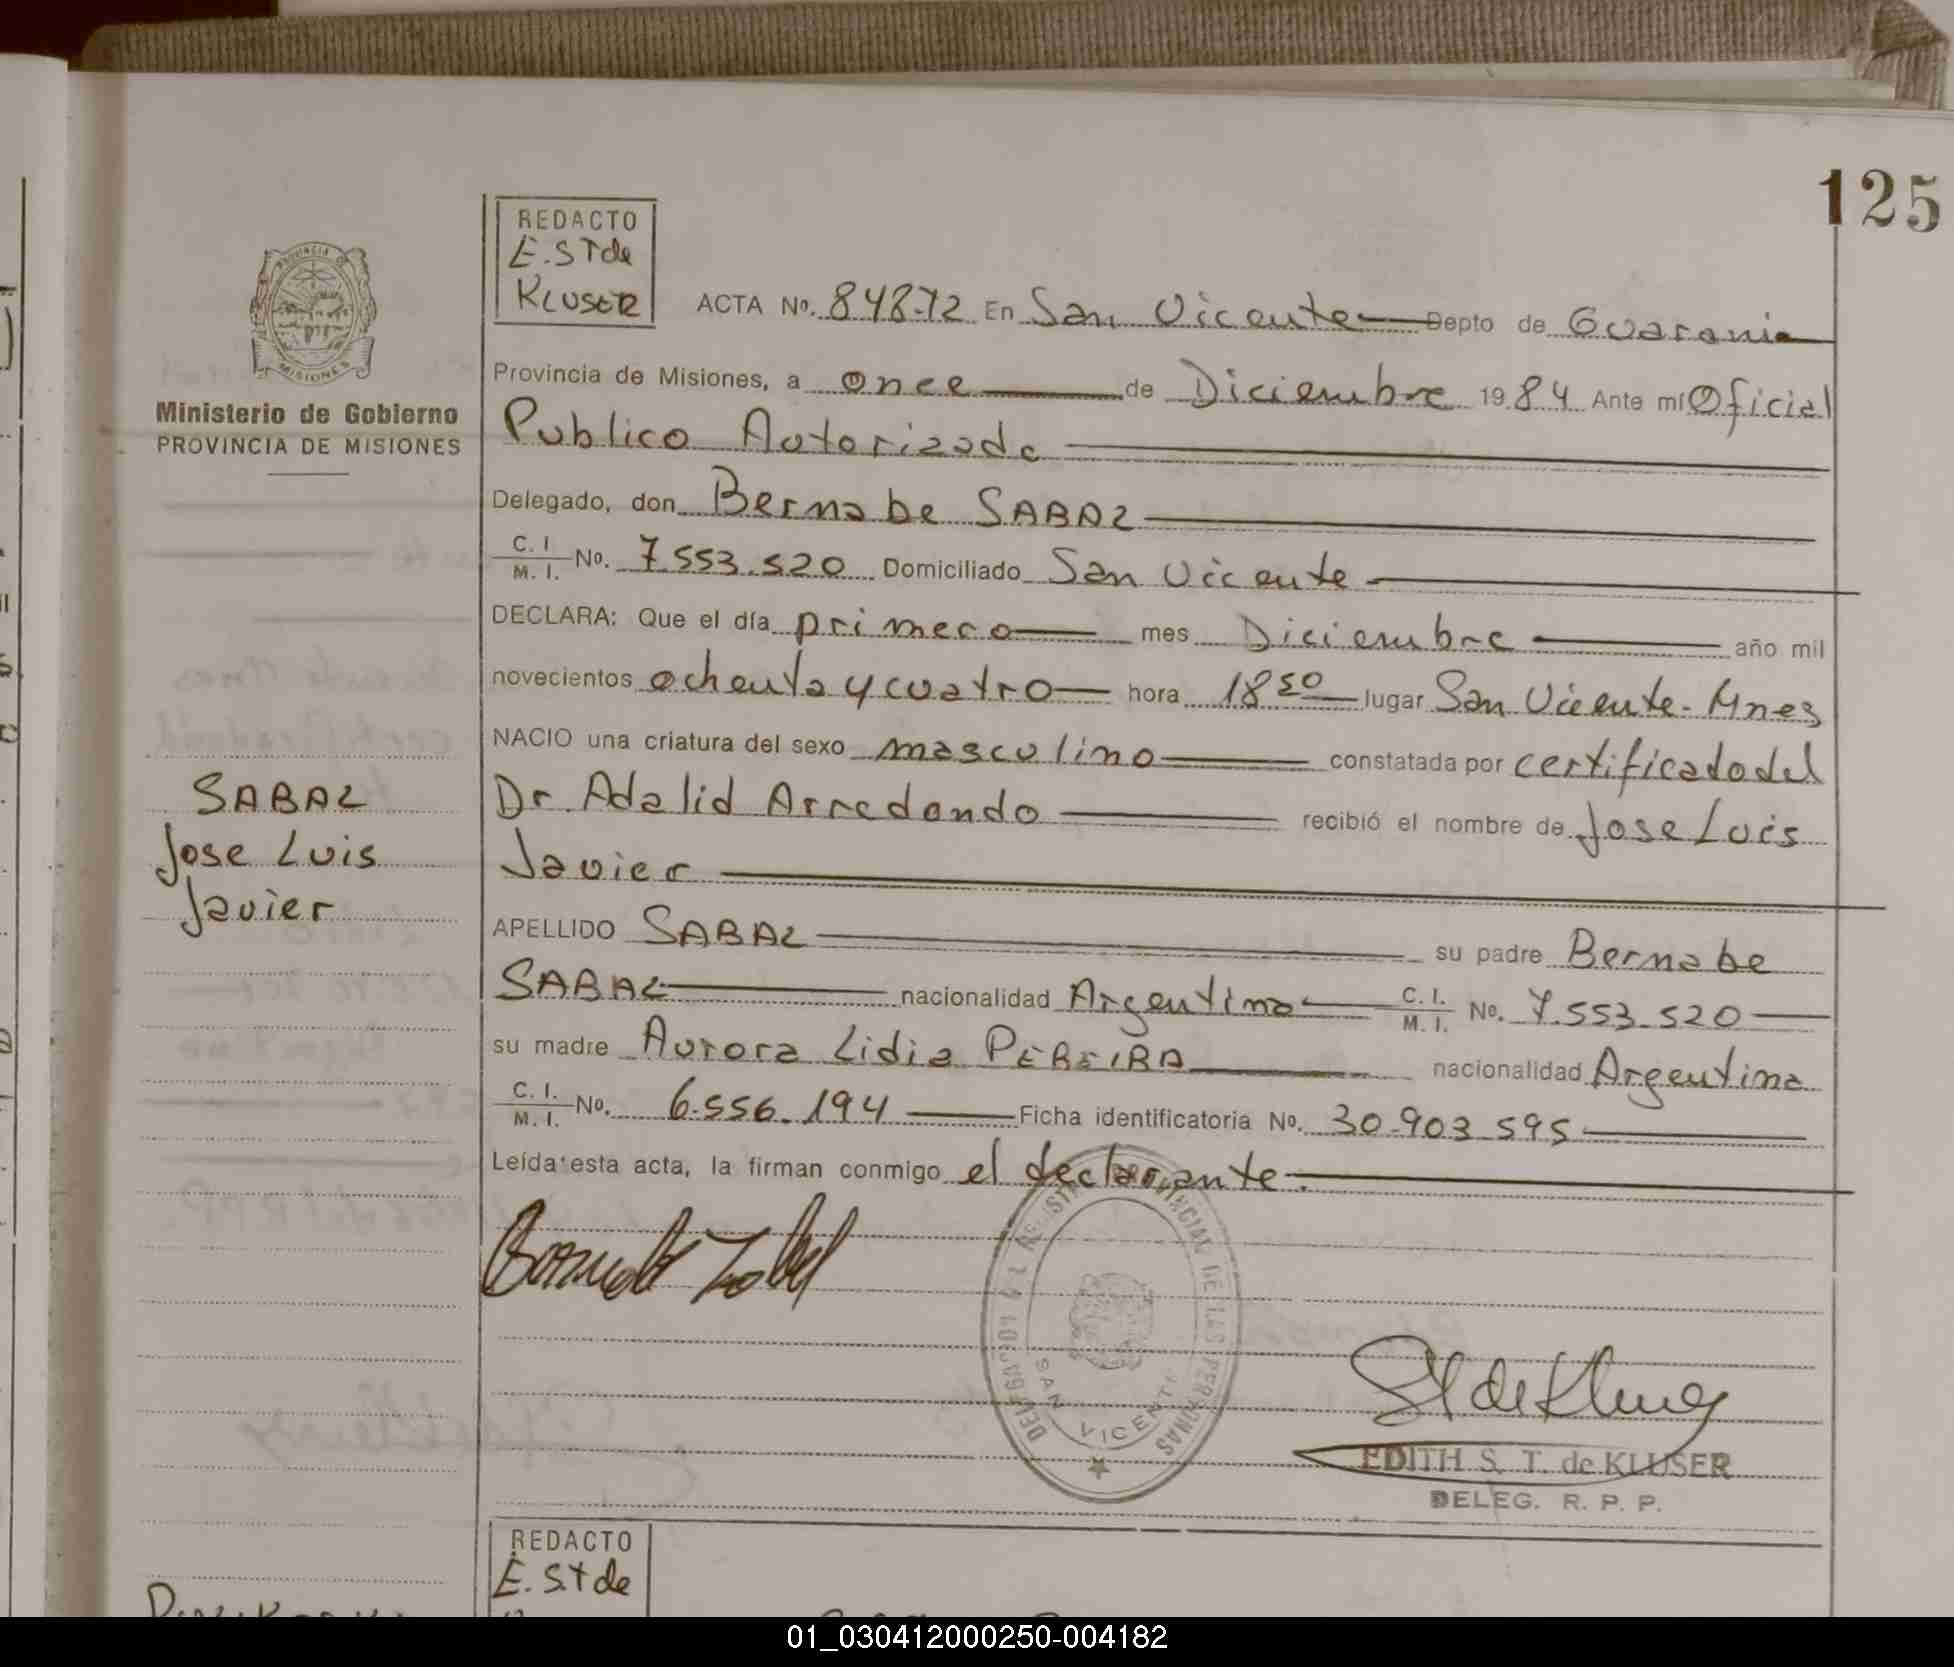 125
REDACTO
E. S T de
KLUSER
ACTA No. 848-T2 En San Vicente Depto de Guarania
Ministerio de Gobierno
PROVINCIA DE MISIONES
Provincia de Misiones, a once de Diciembre 1984 Ante mí Oficial
Publico Autorizado
Delegado, don Bernabe SABAL
C. I. M. I. No. 7.553.520 Domiciliado San Vicente
DECLARA: Que el día primero mes Diciembre año mil
novecientos ochenta y cuatro hora 18 50 lugar San Vicente - Mnes
NACIO una criatura del sexo masculino constatada por certificado del
Dr. Adalid Arredondo recibió el nombre de Jose Luis
Javier
SABAL
Jose Luis
Javier
APELLIDO SABAL su padre Bernabe
SABAL nacionalidad Argentina C. I. M. I. No. 7.553.520
su madre Aurora Lidia PEREIRA nacionalidad Argentina
C. I. M. I. No. 6.556.194 Ficha identificatoria No. 30.903.595
Leída esta acta, la firman conmigo el declarante.
DELEGACION DEL REGISTRO PROVINCIAL DE LAS PERSONAS
SAN VICENTE
EDITH S. T. de KLUSER
DELEG. R. P. P.
REDACTO
E. S.T de
01_030412000250-004182